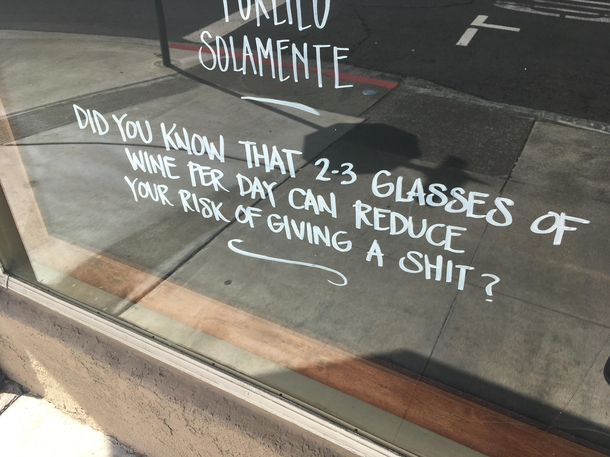 SOLAMENTE
DID YOU KNOW THAT 2-3 GLASSES OF
WINE PER DAY CAN REDUCE
YOUR RISK OF GIVING A SHIT?